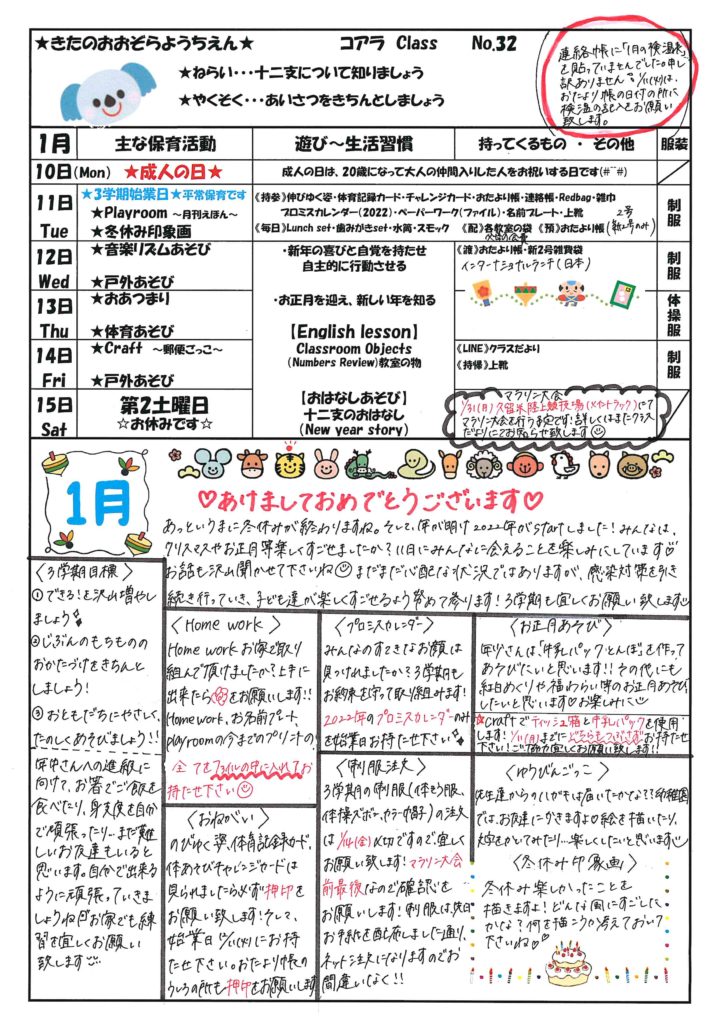 ★きたのおおぞらようちえん★ コアラ Class No.32
★ねらい・・・十二支について知りましょう
★やくそく・・・あいさつをきちんとしましょう
連絡帳に「1月の検温表」
を貼っていませんでした。申し
訳ありません。1/11(火)は、
おたより帳の日付の所に
検温の記入をお願い
致します。
1月 主な保育活動 遊び～生活習慣 持ってくるもの ・ その他 服装
10日(Mon) ★成人の日★ 成人の日は、20歳になって大人の仲間入りした人をお祝いする日です(#^^#)
11日 Tue
★3学期始業日★平常保育です
★Playroom ～月刊えほん～
★冬休み印象画
《持参》伸びゆく姿・体育記録カード・チャレンジカード・おたより帳・連絡帳・Redbag・雑巾
プロミスカレンダー(2022)・ペーパーワーク(ファイル)・名前プレート・上靴
《毎日》Lunch set・歯みがきset・水筒・スモック 《配》各教室の袋 《預》おたより帳
2号
(新2号のみ)
制服
12日 Wed
★音楽リズムあそび
★戸外あそび
・新年の喜びと自覚を持たせ
自主的に行動させる
《渡》おたより帳・新2号雑費袋
インターナショナルランチ(日本)
制服
13日 Thu
★おあつまり
★体育あそび
・お正月を迎え、新しい年を知る
【English lesson】
Classroom Objects
(Numbers Review)教室の物
体操服
14日 Fri
★Craft ～郵便ごっこ～
★戸外あそび
《LINE》クラスだより
《持帰》上靴
制服
15日 Sat
第2土曜日
☆お休みです☆
【おはなしあそび】
十二支のおはなし
(New year story)
マラソン大会
1/31(月)久留米陸上競技場(メイントラック)にて
マラソン大会を行う予定です！詳しくはまたクラス
だよりにてお知らせ致します
1月
♡あけましておめでとうございます♡
あっというまに冬休みが終わりますね。そして、年が明け2022年がstartしました！みんなは、
クリスマスやお正月等楽しくすごせましたか？11日にみんなに会えることを楽しみにしています♡
お話も沢山聞かせて下さいね まだまだ心配な状況ではありますが、感染対策を引き
続き行っていき、子ども達が楽しくすごせるよう努めて参ります！3学期も宜しくお願い致します
〈3学期目標〉
①できる！を沢山増やし
ましょう
②じぶんのもちものの
おかたづけをきちんと
しましょう！
③おともだちにやさしく、
たのしくあそびましょう！！
年中さんへの進級に
向けて、お箸でご飯を
食べたり、身支度を自分
で頑張ったり…まだ難し
いお友達もいると
思います。自分で出来る
ように頑張っていきま
しょうね お家でも練
習を宜しくお願い
致します
〈Home work〉
Home workお家で取り
組んで頂けましたか？上手に
出来たら をお願いします！！
Home work、お名前プレート、
playroomの今までのプリントの
全てをファイルの中に入れてお
持たせ下さい
〈おねがい〉
のびゆく姿、体育記録カード、
体操あそびチャレンジカードは
見られましたら必ず押印を
お願い致します！そして、
始業日1/11(火)にお持
たせ下さい。おたより帳の
うらの所も押印をお願いします
〈プロミスカレンダー〉
みんなのすてきなお顔は
見つけれましたか？3学期も
お約束を守って取り組みます！
2022年のプロミスカレンダーのみ
を始業日お持たせ下さい
〈制服注文〉
3学期の制服(体そう服、
体操ズボン、カラー帽子)の注文
は1/14(金)〆切ですので宜しく
お願い致します！マラソン大会
前最後なので確認を
お願いします！制服は、先日
お手紙を配布しました通り、
ネット注文になりますのでお
間違いなく！！
〈お正月あそび〉
年少さんは、「牛乳パックとんぼ」を作って
あそびたいと思います！！その他にも
絵日めくりや福わらい等のお正月あそび
したいと思います♡お楽しみに♡
☆Craftでティッシュ箱と牛乳パックを使用
します！1/11(月)までにどちらも1つずつお持たせ
下さい！ご協力宜しくお願い致します！！
〈ゆうびんごっこ〉
先生達からのハガキは届いたかな？？幼稚園
では、お友達に書きます♡絵を描いたり、
文字をかいてみたり…楽しくしたいと思います
〈冬休み印象画〉
冬休み楽しかったことを
描きますよ！どんな風にすごした
かな？何を描こうか考えておいて
下さいね♡